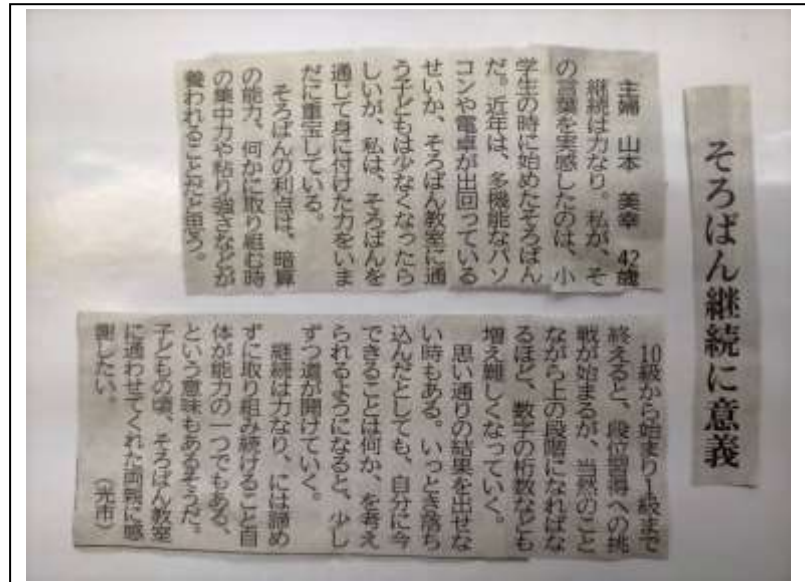 そろばん継続に意義
主婦 山本 美幸 42歳
継続は力なり。私が、そ
の言葉を実感したのは、小
学生の時に始めたそろばん
だ。近年は、多機能なパソ
コンや電卓が出回っている
せいか、そろばん教室に通
う子どもは少なくなったら
しいが、私は、そろばんを
通じて身に付けた力をいま
だに重宝している。
そろばんの利点は、暗算
の能力、何かに取り組む時
の集中力や粘り強さなどが
養われることだと思う。
10級から始まり1級まで
終えると、段位習得への挑
戦が始まるが、当然のこと
ながら上の段階になればな
るほど、数字の桁数なども
増え難しくなっていく。
思い通りの結果を出せな
い時もある。いっとき落ち
込んだとしても、自分に今
できることは何か、を考え
られるようになると、少し
ずつ道が開けていく。
継続は力なり、には諦め
ずに取り組み続けること自
体が能力の一つでもある、
という意味もあるそうだ。
子どもの頃、そろばん教室
に通わせてくれた両親に感
謝したい。 (光市)